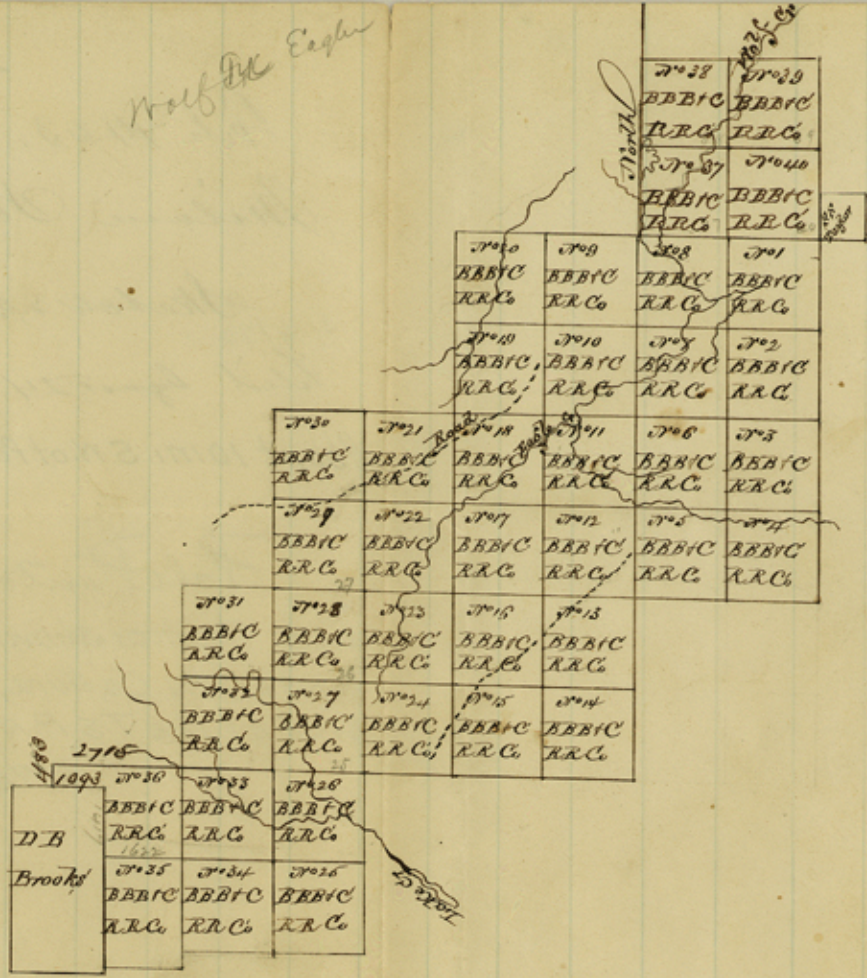 Wolf Eagle
Wolf Cr
North
No 38
BBB&C
RRCo
No 39
BBB&C
RRCo
No 37
BBB&C
RRCo
No 40
BBB&C
RRCo
Taylor
BBB&C
RRCo
No 9
BBB&C
RRCo
No 8
BBB&C
RRCo
No 1
BBB&C
RRCo
No 19
BBB&C
RRCo
No 10
BBB&C
RRCo
No 7
BBB&C
RRCo
No 2
BBB&C
RRCo
No 30
BBB&C
RRCo
No 21
BBB&C
RRCo
Road
No 18
BBB&C
RRCo
Eagle Cr
No 11
BBB&C
RRCo
No 6
BBB&C
RRCo
No 3
BBB&C
RRCo
No 29
BBB&C
RRCo
No 22
BBB&C
RRCo
No 17
BBB&C
RRCo
No 12
BBB&C
RRCo
No 5
BBB&C
RRCo
No 4
BBB&C
RRCo
27
No 31
BBB&C
RRCo
No 28
BBB&C
RRCo
No 23
BBB&C
RRCo
No 16
BBB&C
RRCo
No 13
BBB&C
RRCo
26
No 32
BBB&C
RRCo
No 27
BBB&C
RRCo
No 24
BBB&C
RRCo
No 15
BBB&C
RRCo
No 14
BBB&C
RRCo
25
483
2715
1093
No 36
BBB&C
RRCo
1622
No 33
BBB&C
RRCo
No 26
BBB&C
RRCo
DB
Brooks
No 35
BBB&C
RRCo
No 34
BBB&C
RRCo
No 25
BBB&C
RRCo
Lake Cr